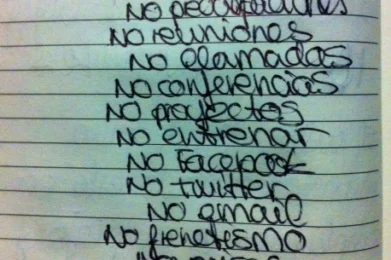 NO
NO reuniones
NO llamadas
NO conferencias
NO proyectos
NO entrenar
NO Facebook
NO twitter
NO gmail
NO frenetismo